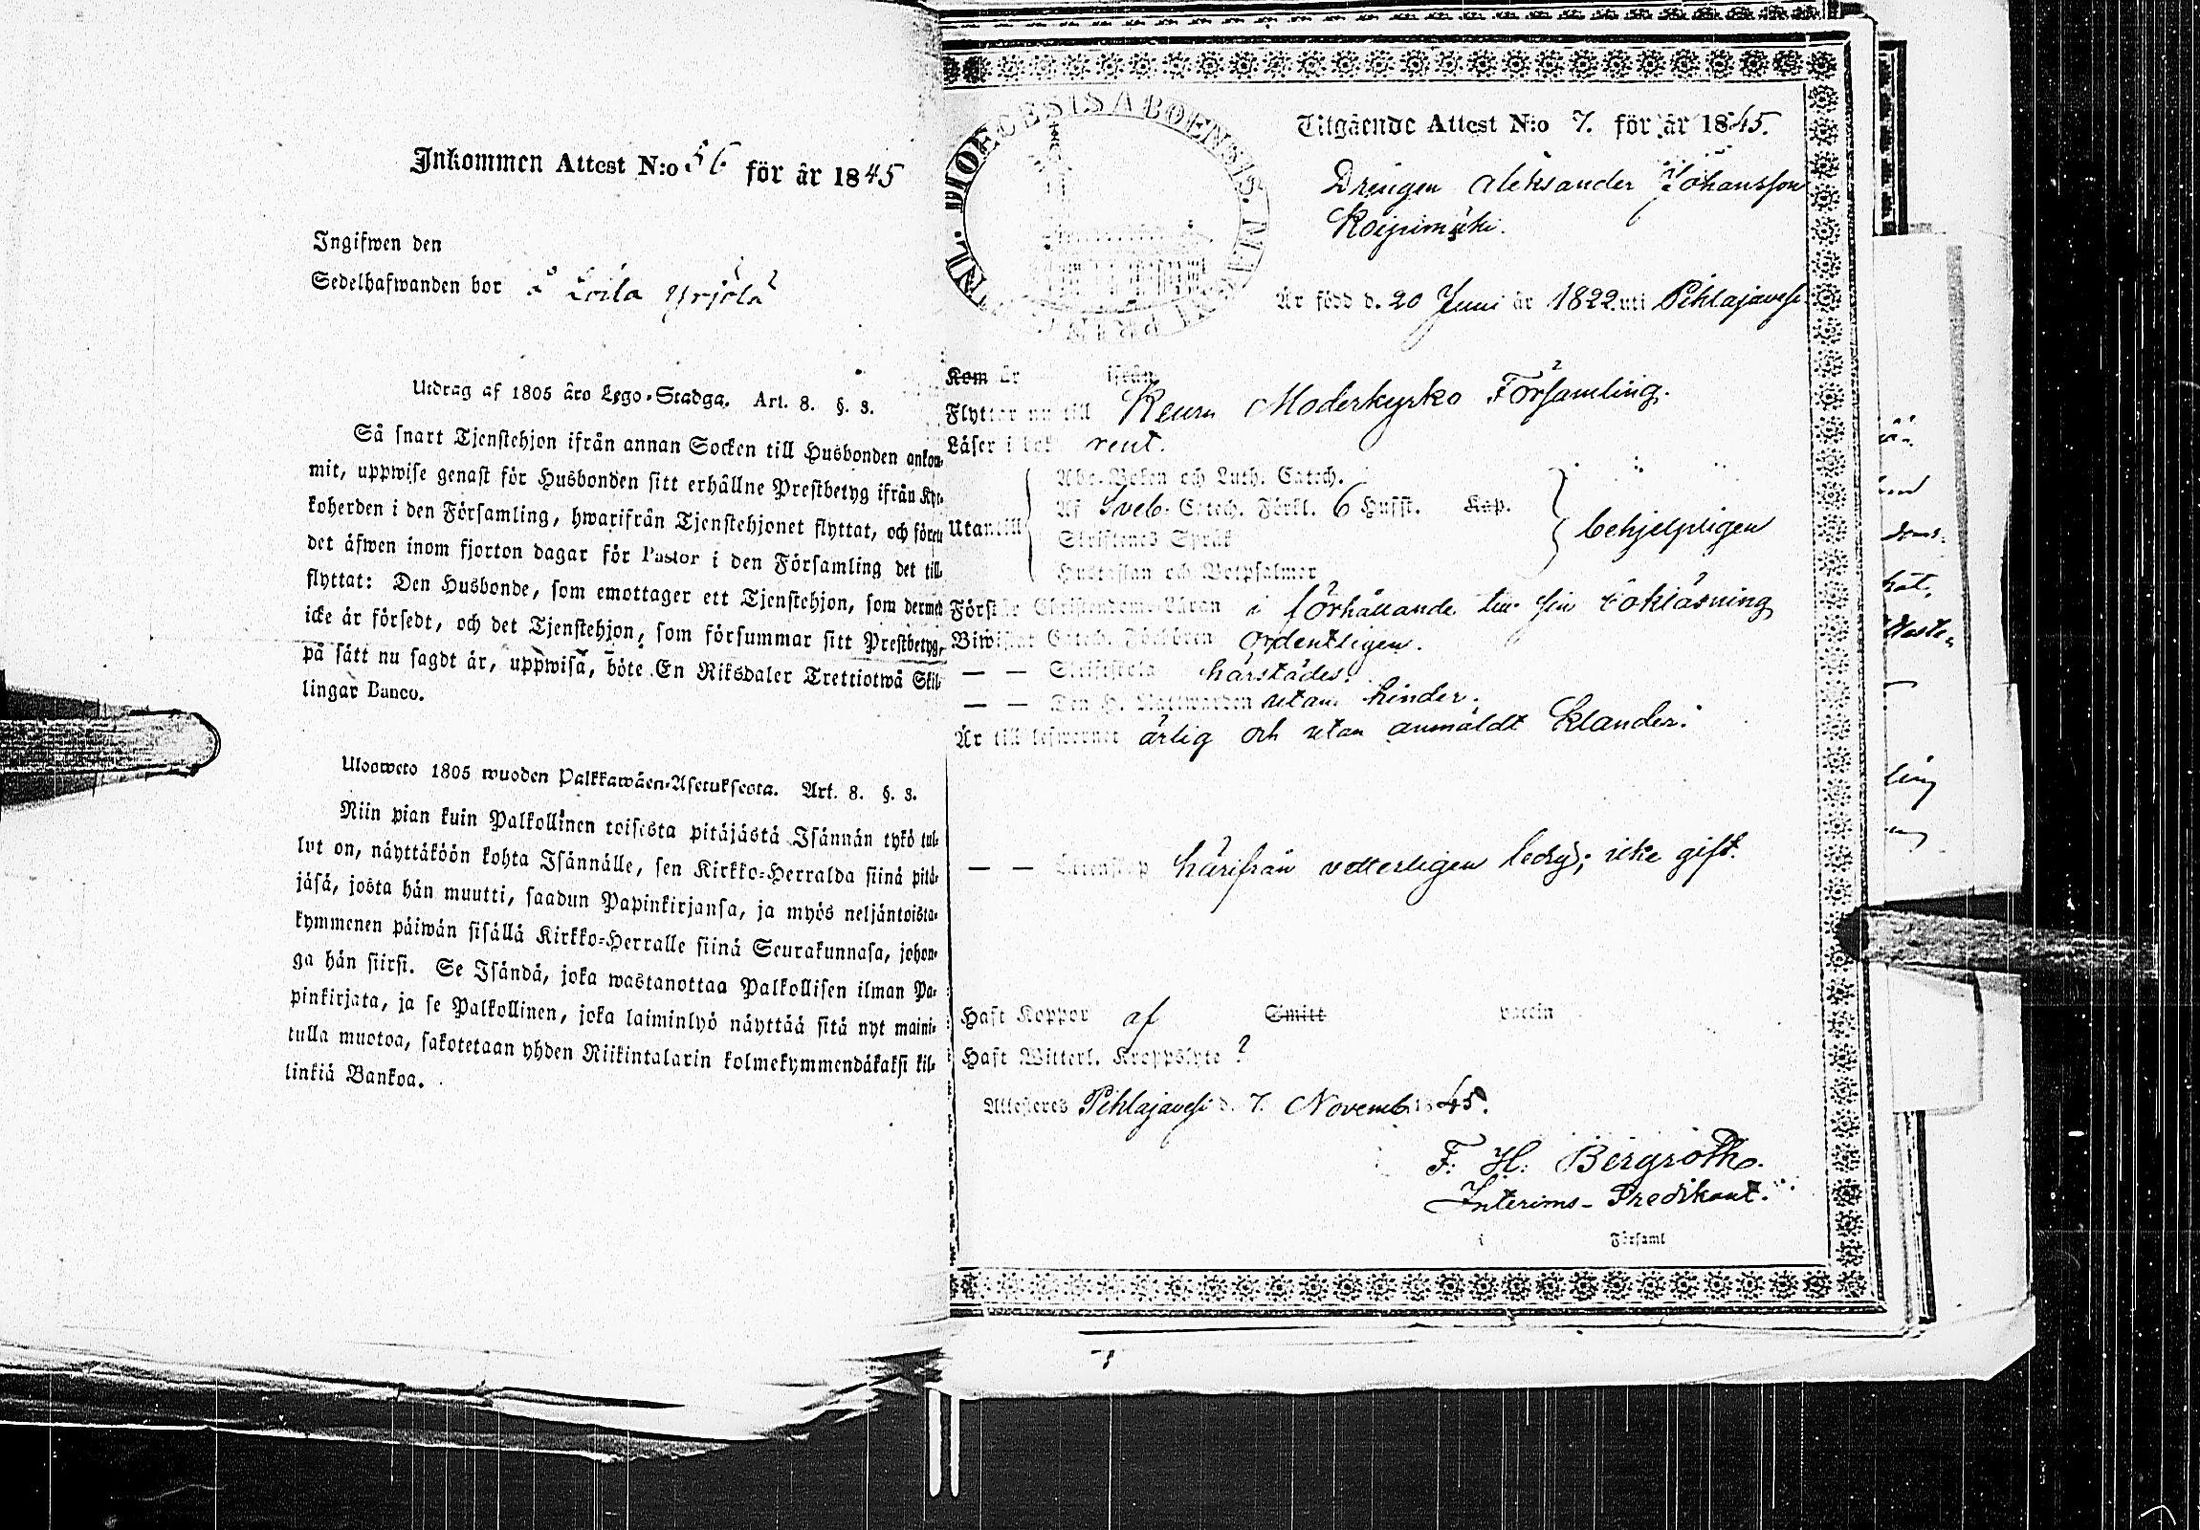 Inkommen Attest N:o 56 för år 1845
Ingifwen den
Sedelhafwanden bor å Loila Yrjölä
Utdrag af 1805 åro Lego-Stadga. Art. 8. §. 3.
Så snart Tjenstehjon ifrån annan Socken till Husbonden ankom-
mit, uppwise genast för Husbonden sitt erhållne Prestbetyg ifrån Kyr-
koherden i den Församling, hwarifrån Tjenstehjonet flyttat, och förete
det äfwen inom fjorton dagar för Pastor i den Församling det till-
flyttat: Den Husbonde, som emottager ett Tjenstehjon, som dermed
icke är försedt, och det Tjenstehjon, som försummar sitt Prestbetyg,
på sätt nu sagdt är, uppwisa, böte En Riksdaler Trettiotwå Skil-
lingar Banco.
Ulosweto 1805 wuoden Palkkawäen-Asetuksesta. Art. 8. §. 3.
Niin pian kuin Palkollinen toisesta pitäjästä Isännän tykö tul-
lut on, näyttäköön kohta Isännälle, sen Kirkko-Herralda siinä pitä-
jäsä, josta hän muutti, saadun Papinkirjansa, ja myös neljäntoista-
kymmenen päiwän sisällä Kirkko-Herralle siinä Seurakunnasa, johon-
ga hän siirsi. Se Isändä, joka wastanottaa Palkollisen ilman Pa-
pinkirjata, ja se Palkollinen, joka laiminlyö näyttää sitä nyt maini-
tulla muotoa, sakotetaan yhden Riikintalarin kolmekymmendäkaksi kil-
linkiä Bankoa.
DIOECESIS ABOENSIS.
Utgående Attest N:o 7. för år 1845.
Drengen Aleksander Johansson
Koipimäki.
Är född d. 20 Juni år 1822 uti Pihlajavesi
Kom år ifrån
Flyttar nu till Keuru Moderkyrko Församling.
Läser i bok rent.
Abc-Boken och Luth. Catech.
Utantill Af Sveb. Catech. Förkl. 6 Hufst. Kap. behjelpligen
Skriftenes Språk
Hustaflan och Botpsalmer
Förstår Christendoms-Läran i förhållande till sin
Biwistat Catech. Förhören ordentligen.
— — Skriftskola härstädes.
— — Den H. Nattwarden utan hinder.
Är till lefwernet ärlig och utan anmäldt klander.
— — Äktenskap härifrån vetterligen ledig; icke gift.
Haft Koppor af Smitt vaccin
Haft Witterl. Kroppslyte ?
Attesteras Pihlajavesi d. 7. Novemb. 1845.
F. H. Bergroth.
Interims-Predikant.
i Församl